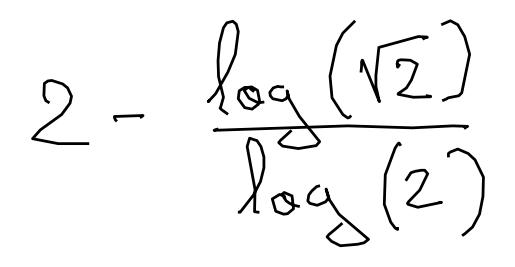 2 - \frac{\log(\sqrt{2})}{\log(2)}